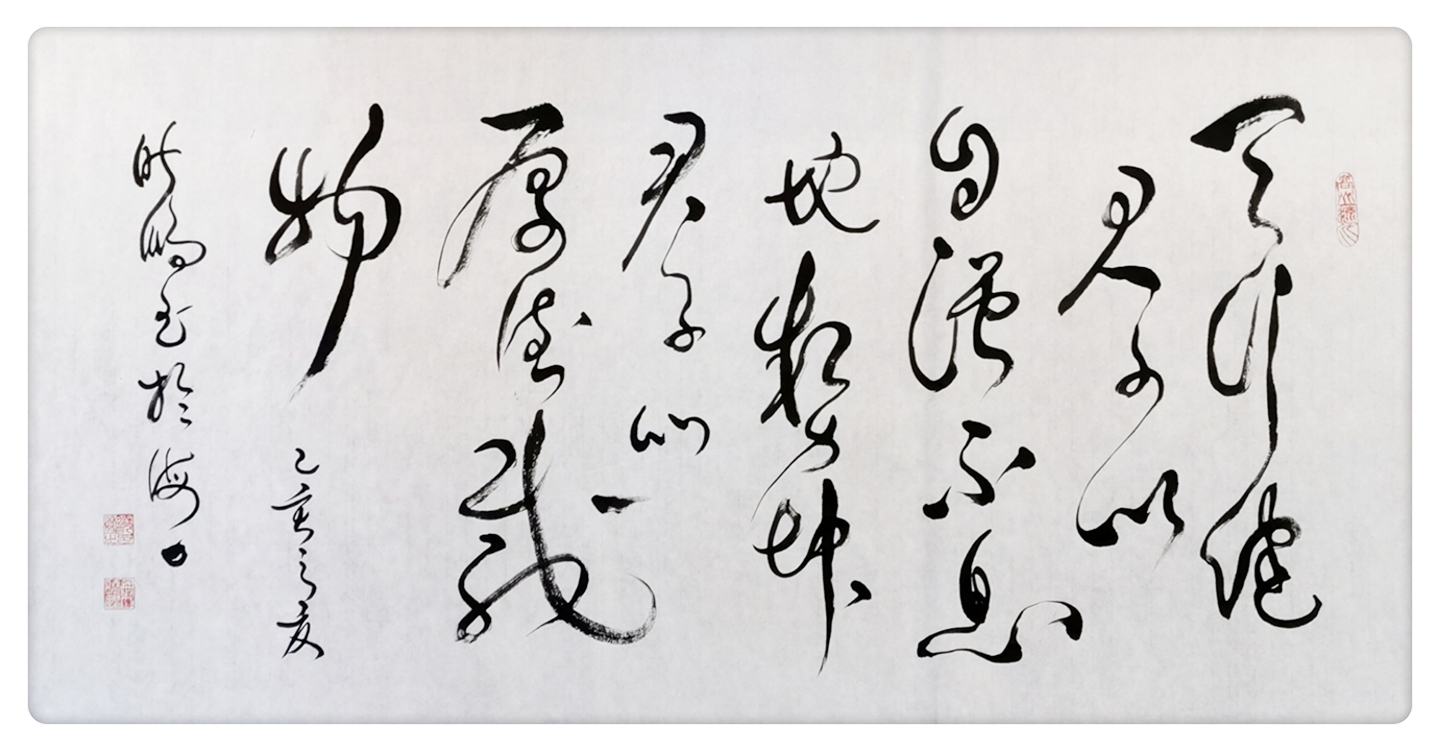 天行健
君子以
自强不息
地势坤
君子以
厚德载
物 己亥之夏
鹏书于海口